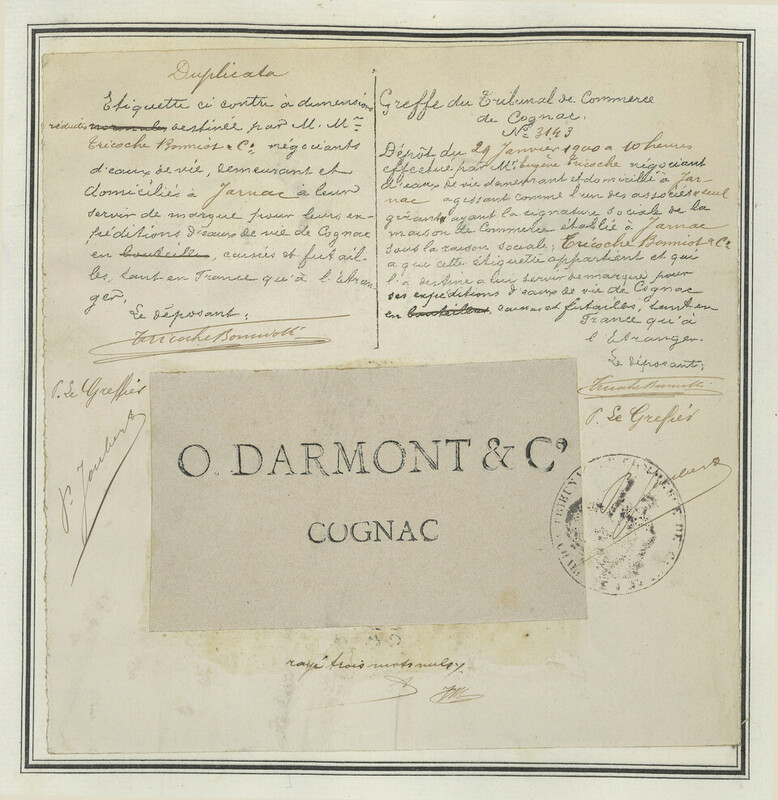 Duplicata
Etiquette ci contre à dimensions
réduites normales destinée par M. Mrs
Tricoche Bonniot & Co négociants
d'eaux de vie, demeurant et
domiciliés à Jarnac à leur
servir de marque pour leurs ex-
péditions d'eaux de vie de Cognac
en bouteilles, caisses et futail-
les, tant en France qu'à l'étran-
ger.
Le déposant:
Tricoche Bonniot & Co
P. Le Greffier
P. Joubert
Greffe du Tribunal de Commerce
de Cognac.
No 3143
Dépôt du 29 Janvier 1900 à 10 heures
effectué par Mr Eugène Tricoche négociant
d'eaux de vie demeurant et domicilié à Jar-
nac agissant comme l'un des associés seul
gérant ayant la signature sociale de la
maison de Commerce établie à Jarnac
sous la raison sociale; Tricoche Bonniot & Co
a qui cette étiquette appartient et qui
l'a destine a lui servir de marque pour
ses expéditions d'eaux de vie de Cognac
en bouteilles, caisses et futailles, tant en
France qu'à
l'Etranger.
Le déposant;
Tricoche Bonniot & Co
P. Le Greffier
Joubert
O. DARMONT & Co
COGNAC
TRIBUNAL DE COMMERCE DE
rayé trois mots nuls